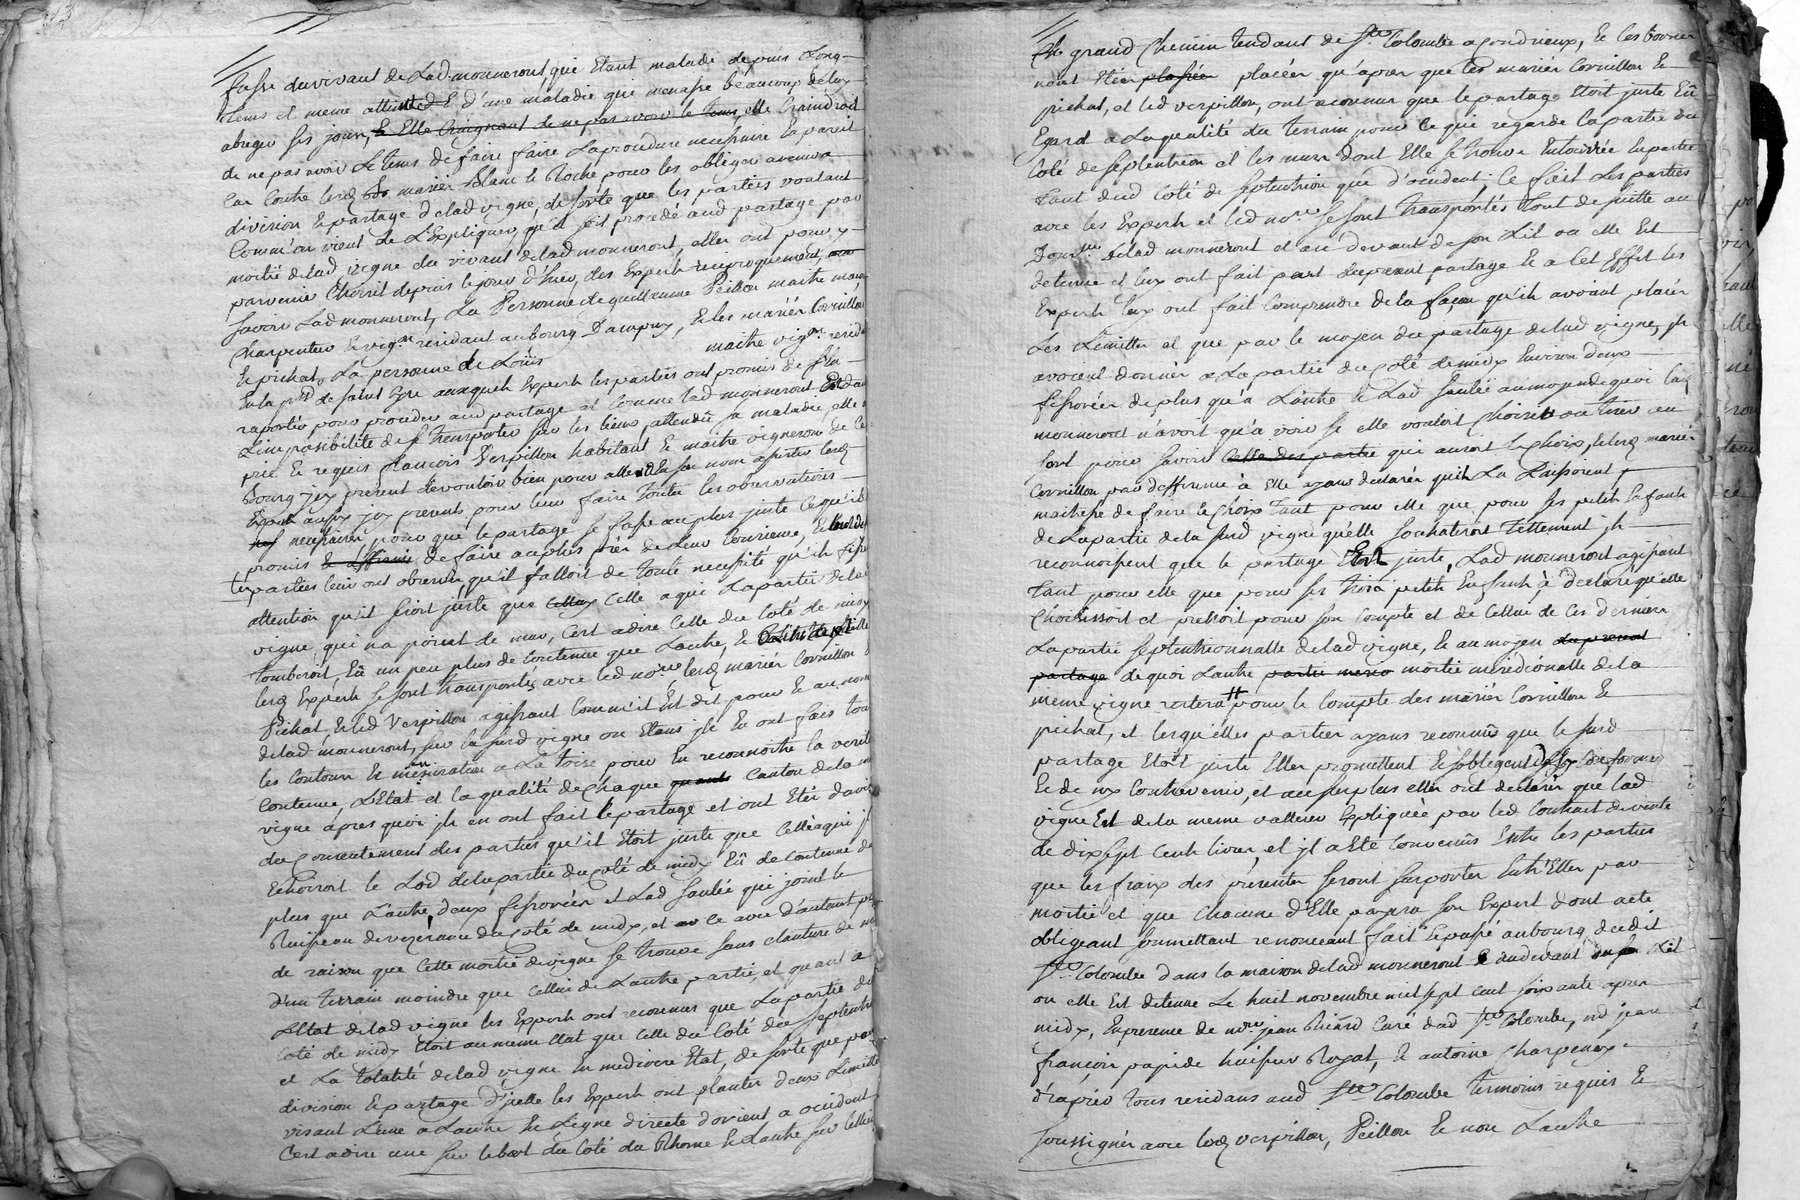 fasse du vivant de Lad. monneront, que Etant malade depuis Long-
tems et meme atteinte d'une maladie qui menasse beaucoup de luy
abreger ses jours, Et Elle Craignant de ne pas avoir le tems, elle Craindroit
de ne pas avoir Le tems de faire faire La procedure necessaire En pareil
Cas Contre lesd. mariés Blanc & Roche pour les obliger a venir a
division & partage de lad. vigne, de sorte que les parties voulant
Comm'on vient de L'Expliquer qu'il soit procedé aud. partage par
moitié de lad. vigne du vivant de lad. monneront, elles ont pour y
parvenir Choisit depuis le jour d'hier, des Experts reciproquement,
savoir Lad. monneront, La Personne de guillaume Peillon maitre
charpentier & vign.on residant au bourg D'ampuy, & les mariés Cornillon
& pichat, La personne de Loüis maitre vig.on resid
En la p.sse de saint Cyre auxquels Experts les parties ont promis de s'En
raporter pour proceder aud. partage et Comme lad. monneront Est dans
L'impossibilité de se transporter sur les lieux, attendû sa maladie, elle a
prié & requis françois Verpillon habitant & maitre vigneron de ce
Bourg jcy present de vouloir bien pour elle & En son nom assister lesd.
Experts aussy jcy presents pour leur faire toutes les observations
necessaires, pour que le partage se fasse au plus juste ce qu'ils
promis de faire au plus près de Leur Consience, & les
parties leur ont observé, qu'il falloit de toute necessité qu'ils fissent
attention qu'il seroit juste que Celle a qui La partie de lad.
vigne qui n'a point de mur, C'est a dire Celle du Coté de midy
tomberoit, Eû un peu plus de Contenue que L'autre, &
lesd. Experts se sont transportés avec led. no.re lesd. mariés Cornillon &
Pichat, & led. Verpillon agissant Comm'il Est dit pour & au nom
de lad. monneront, sur la susd. vigne ou Etans jls En ont fait tous
les Contours & mensuration a La toise pour En reconnoitre la verit
Contenue, L'Etat et la qualité de Chaque Canton de la
vigne apres quoi jls en ont fait le partage et ont Etés d'avis
du Consentement des parties qu'il Etoit juste que Celle a qui
Echorroit le Lod de la partie du Coté de midy Eû de Contenue de
plus que L'autre, deux fessorées et Lad. saulée qui joint le
Ruisseau de vezerance du Coté de midy, et ce avec d'autant plus
de raison que Cette moitié de vigne se trouve sans cloture de mur
d'un terrain moindre que Cellui de L'autre partie, et quant a
L'Etat de lad. vigne les Experts ont reconnus que La partie du
Coté de midy Etoit au meme Etat que Celle du Coté du septentrion
et La totalité de lad. vigne En mediocre Etat, de sorte que pour
division & partage d'jcelle les Experts ont planter deux Limittes
visant L'une a L'autre En Ligne directe d'orient a occident
C'est a dire une sur le bort du Coté du Rhosne & L'autre sur Celluy
grand Chemin tendant de S.te Colombe a Condrieux, & les bornes
nont Eter placées qu'apres que les mariés Cornillon &
pichat, et led. verpillon, ont reconnus que le partage Etoit juste Eû
Egard a La qualité du terrain pour ce qui regarde la partie du
Coté de septentrion et les murs dont Elle se trouve Entourrée En partie
tant dud. Coté de septentrion que d'occident. Ce fait Les parties
avec les Experts et led. no.re se sont transportés tout de suitte au
Dom.le de lad. monneront et au devant de son Lit ou elle Est
detenue et Luy ont fait part du present partage & a Cet Effet les
Experts Luy ont fait Comprendre de la façon qu'ils avoient placés
Les Limittes et que par le moyen du partage de lad. vigne, jls
avoient donner a La partie du Coté de midy Environ deux
fessorées de plus qu'a L'autre & Lad. saulée au moyen de quoi Lad.
monneront n'avoit qu'a voir si elle vouloit Choisir ou tirer au
sort pour savoir qui auroit le choix, & lesd. mariés
Cornillon par defference à Elle ayans declarés qu'ils La Laissoient
maitresse de faire le Choix tant pour elle que pour ses petits Enfants
de La partie de la susd. vigne qu'elle souhaiteroit tellement jls
reconnoissent que le partage Est juste, Lad. monneront agissant
tant pour elle que pour ses trois petits Enfants à declaré qu'elle
Choisissoit et prenoit pour son Compte et de Cellui de Ces derniers
La partie septentrionnalle de lad. vigne, & au moyen du present
partage de quoi L'autre moitié meridionalle de la
meme vigne restera pour le Compte des mariés Cornillon &
pichat, et lesquelles parties ayans reconnûs que le susd.
partage Etoit juste Elles promettent & s'obligent
& de n'y Contrevenir, et au surplus elles ont declarés que lad.
vigne Est de la meme valleur Expliquée par led. Contract de vente
de dix sept Cents livres, et jl a Eté Convenûs Entre les parties
que les fraix des presentes seront suportés Entr'Elles par
moitié et que Chacune d'Elle payera son Expert dont acte
obligeant soumettant renonceant fait & passé au bourg dud.
S.te Colombe dans la maison de lad. monneront & au devant Lit
ou elle Est detenue Le huit novembre mil sept cent soixante apres
midy, En presence de m.re jean Curé dud. S.te Colombe, m.e jean
françois papide huissier Royal, & antoine Charpenay
d'après tous residans aud. S.te Colombe temoins requis &
soussignés avec lesd. verpillon, Peillon & non L'autre